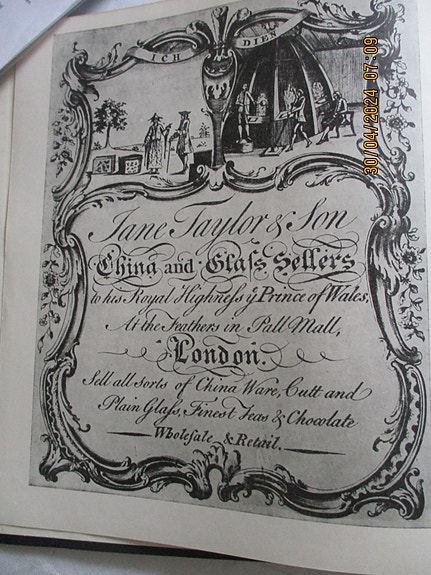 ICH DIEN
Jane Taylor & Son
China and Glaſs Sellers
to his Royal Highneſs ye Prince of Wales,
At the Feathers in Pall Mall,
London.
Sell all sorts of China Ware, Cutt and
Plain Glaſs, Finest Teas & Chocolate
Wholeſale & Retail.
30/04/2024 07:09